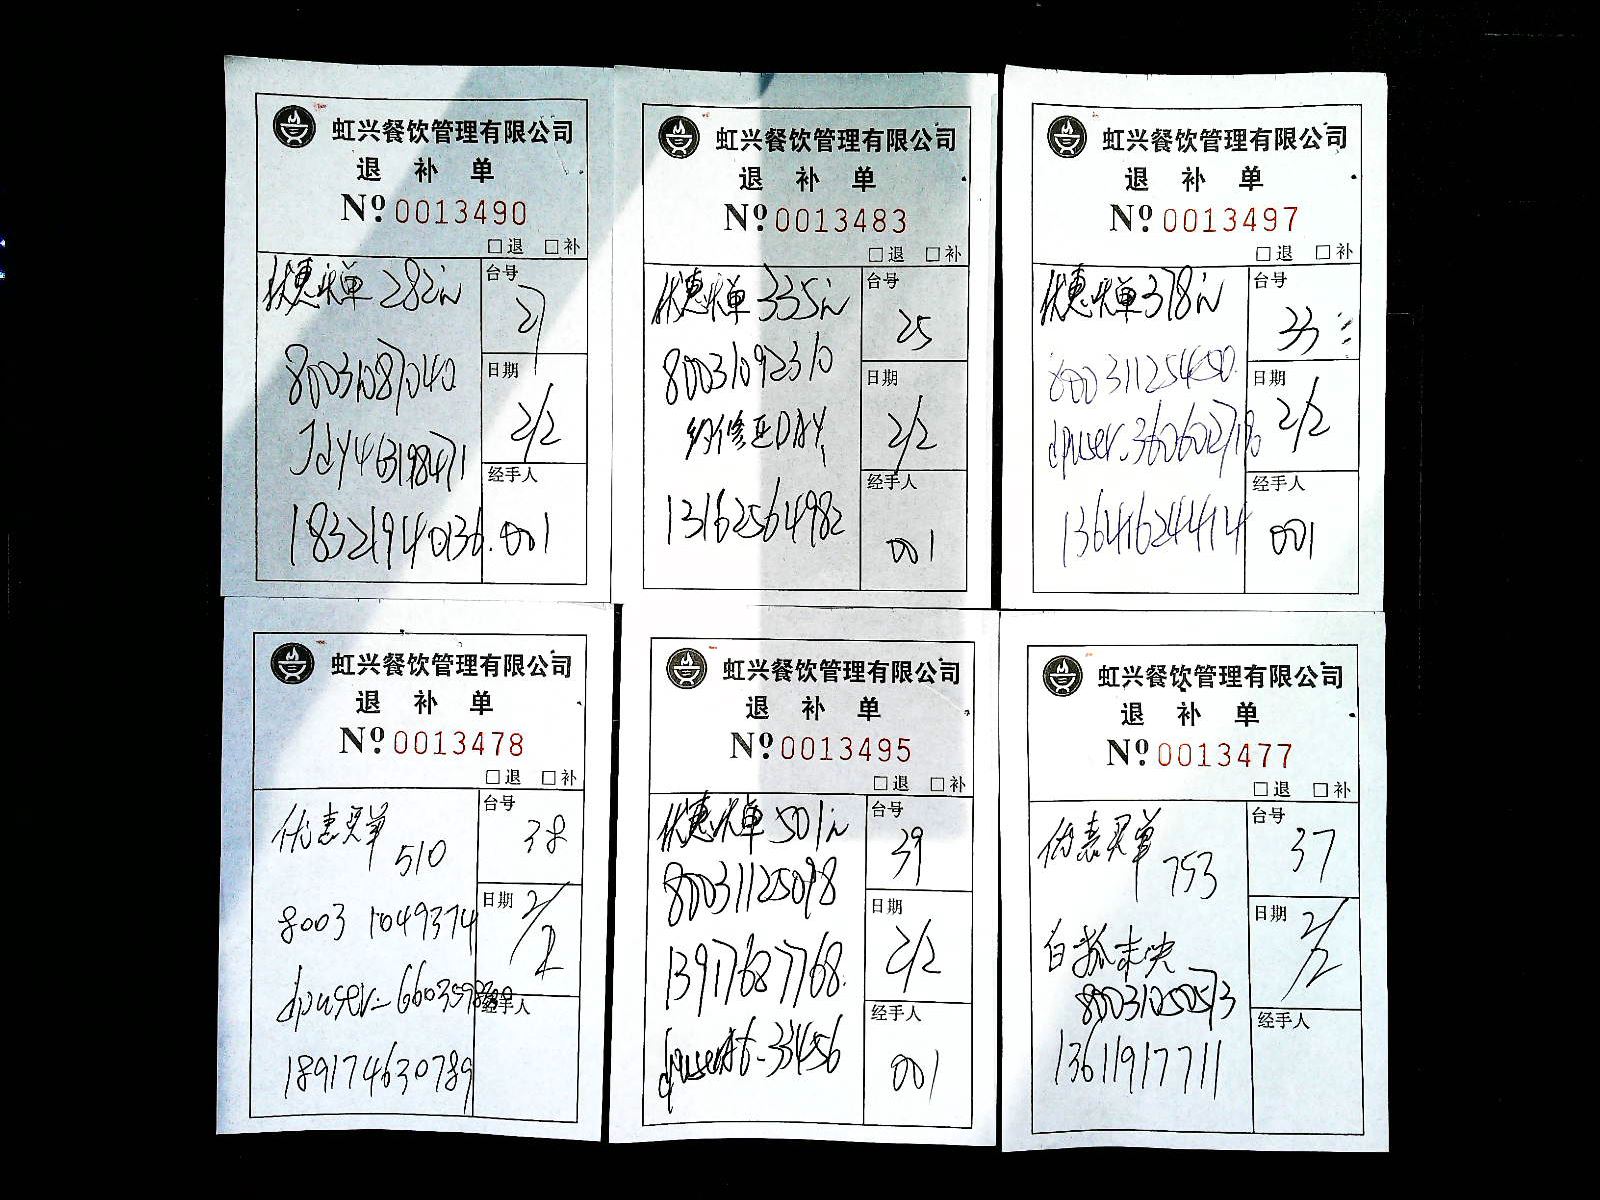 虹兴餐饮管理有限公司
退 补 单
№ 0013490
□退 □补
优惠买单 282元
台号
27
80031087040
日期
2/2
Jdy463198471
经手人
18321940136
001
虹兴餐饮管理有限公司
退 补 单
№ 0013483
□退 □补
优惠买单 335元
台号
25
80031092310
日期
2/2
DAY
经手人
13162564982
001
虹兴餐饮管理有限公司
退 补 单
№ 0013497
□退 □补
优惠买单 378元
台号
33
80031125450
日期
2/2
经手人
13641624414
001
虹兴餐饮管理有限公司
退 补 单
№ 0013478
□退 □补
优惠买单
510
台号
38
8003 1049374
日期
2/2
经手人
189174630789
虹兴餐饮管理有限公司
退 补 单
№ 0013495
□退 □补
优惠买单 501元
台号
39
80031125098
日期
2/2
13917687768
经手人
001
虹兴餐饮管理有限公司
退 补 单
№ 0013477
□退 □补
优惠买单
753
台号
37
白狐未央
日期
2/2
80031050573
经手人
13611917711